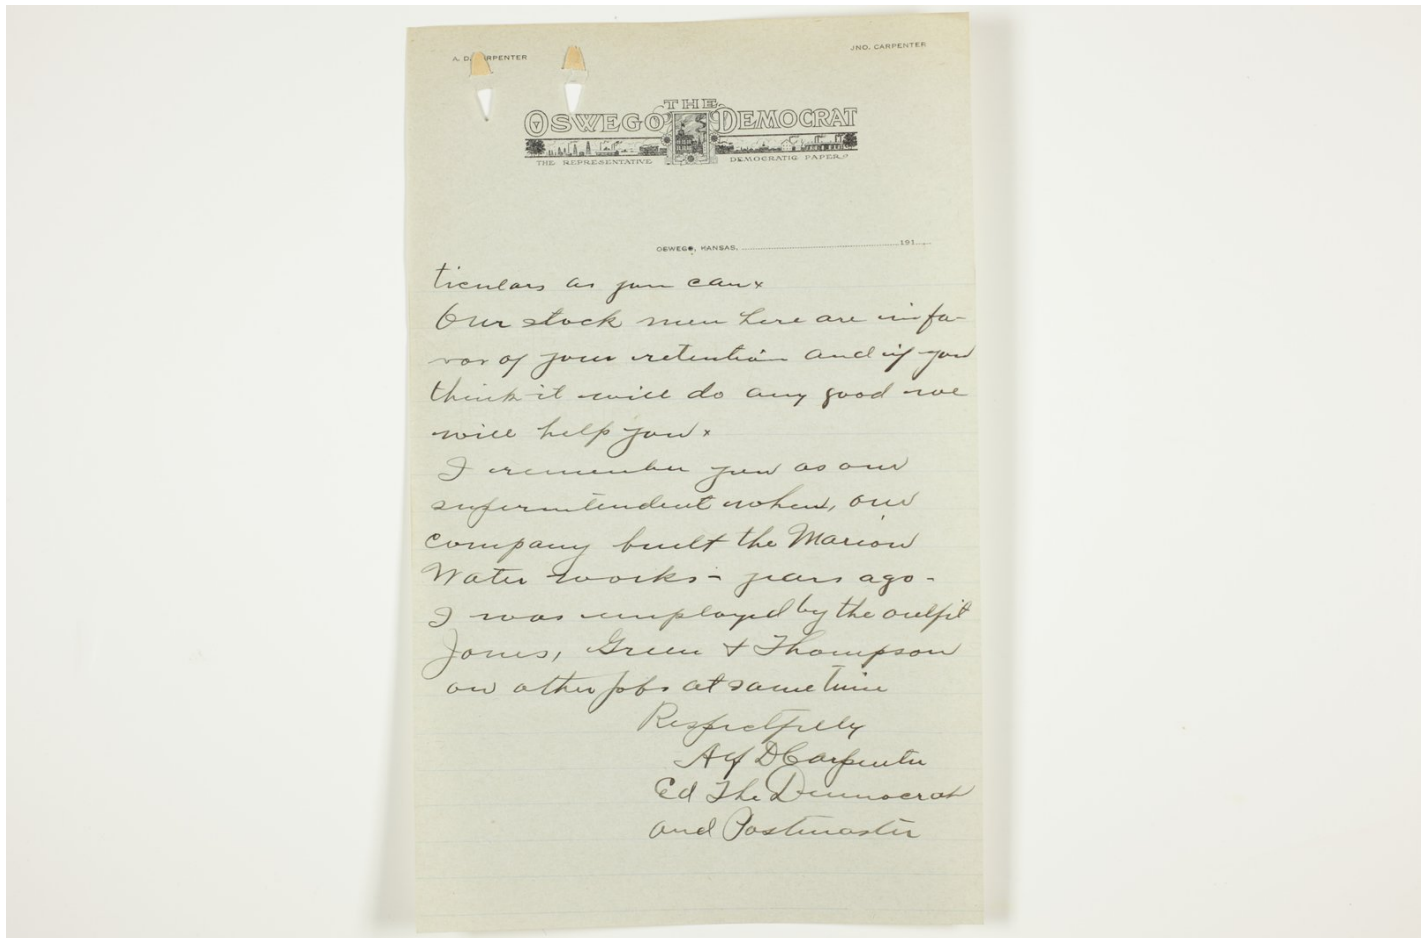 A. D. CARPENTER
JNO. CARPENTER
THE
OSWEGO DEMOCRAT
THE REPRESENTATIVE DEMOCRATIC PAPER
OSWEGO, KANSAS, 191
ticulars as you can x
Our stock men here are in fa-
vor of your retention and if you
think it will do any good we
will help you x
I remember you as our
superintendent when, our
company built the Marion
Water works - years ago -
I was employed by the outfit
Jones, Green & Thompson
on other jobs at same time
Respectfully
D Carpenter
Ed The Democrat
and Postmaster